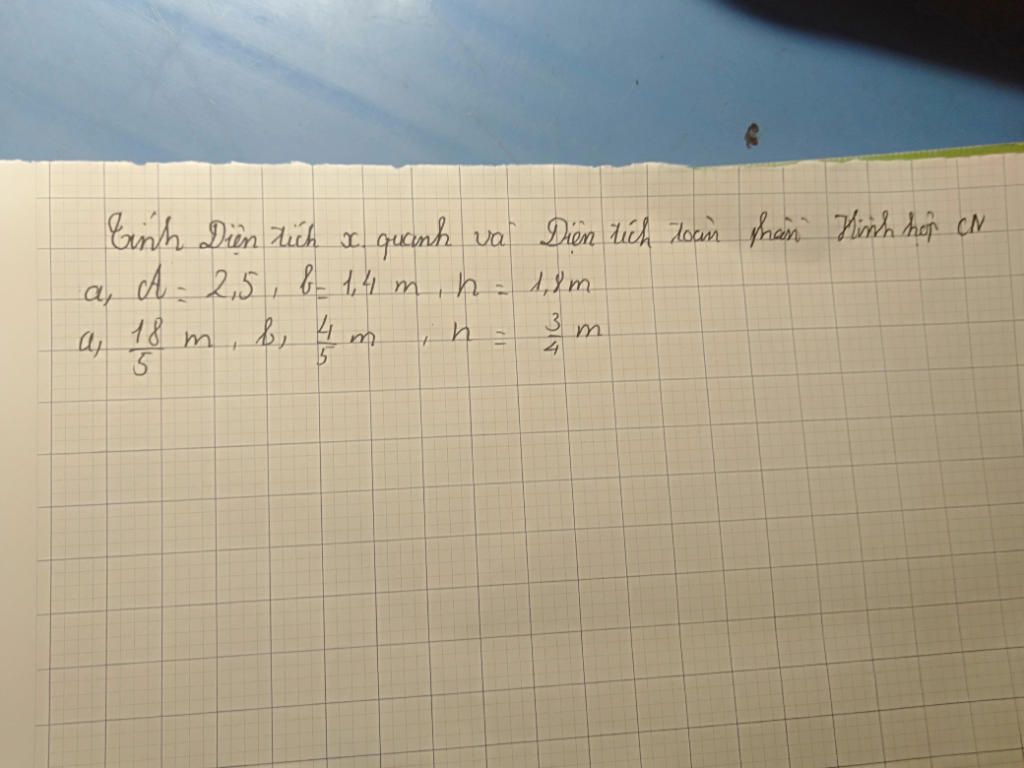 Tính Diện tích x. quanh và Diện tích toàn phần Hình hộp CN
a, A = 2,5, b = 1,4 m, h = 1,8 m
a, 18/5 m, b, 4/5 m, h = 3/4 m